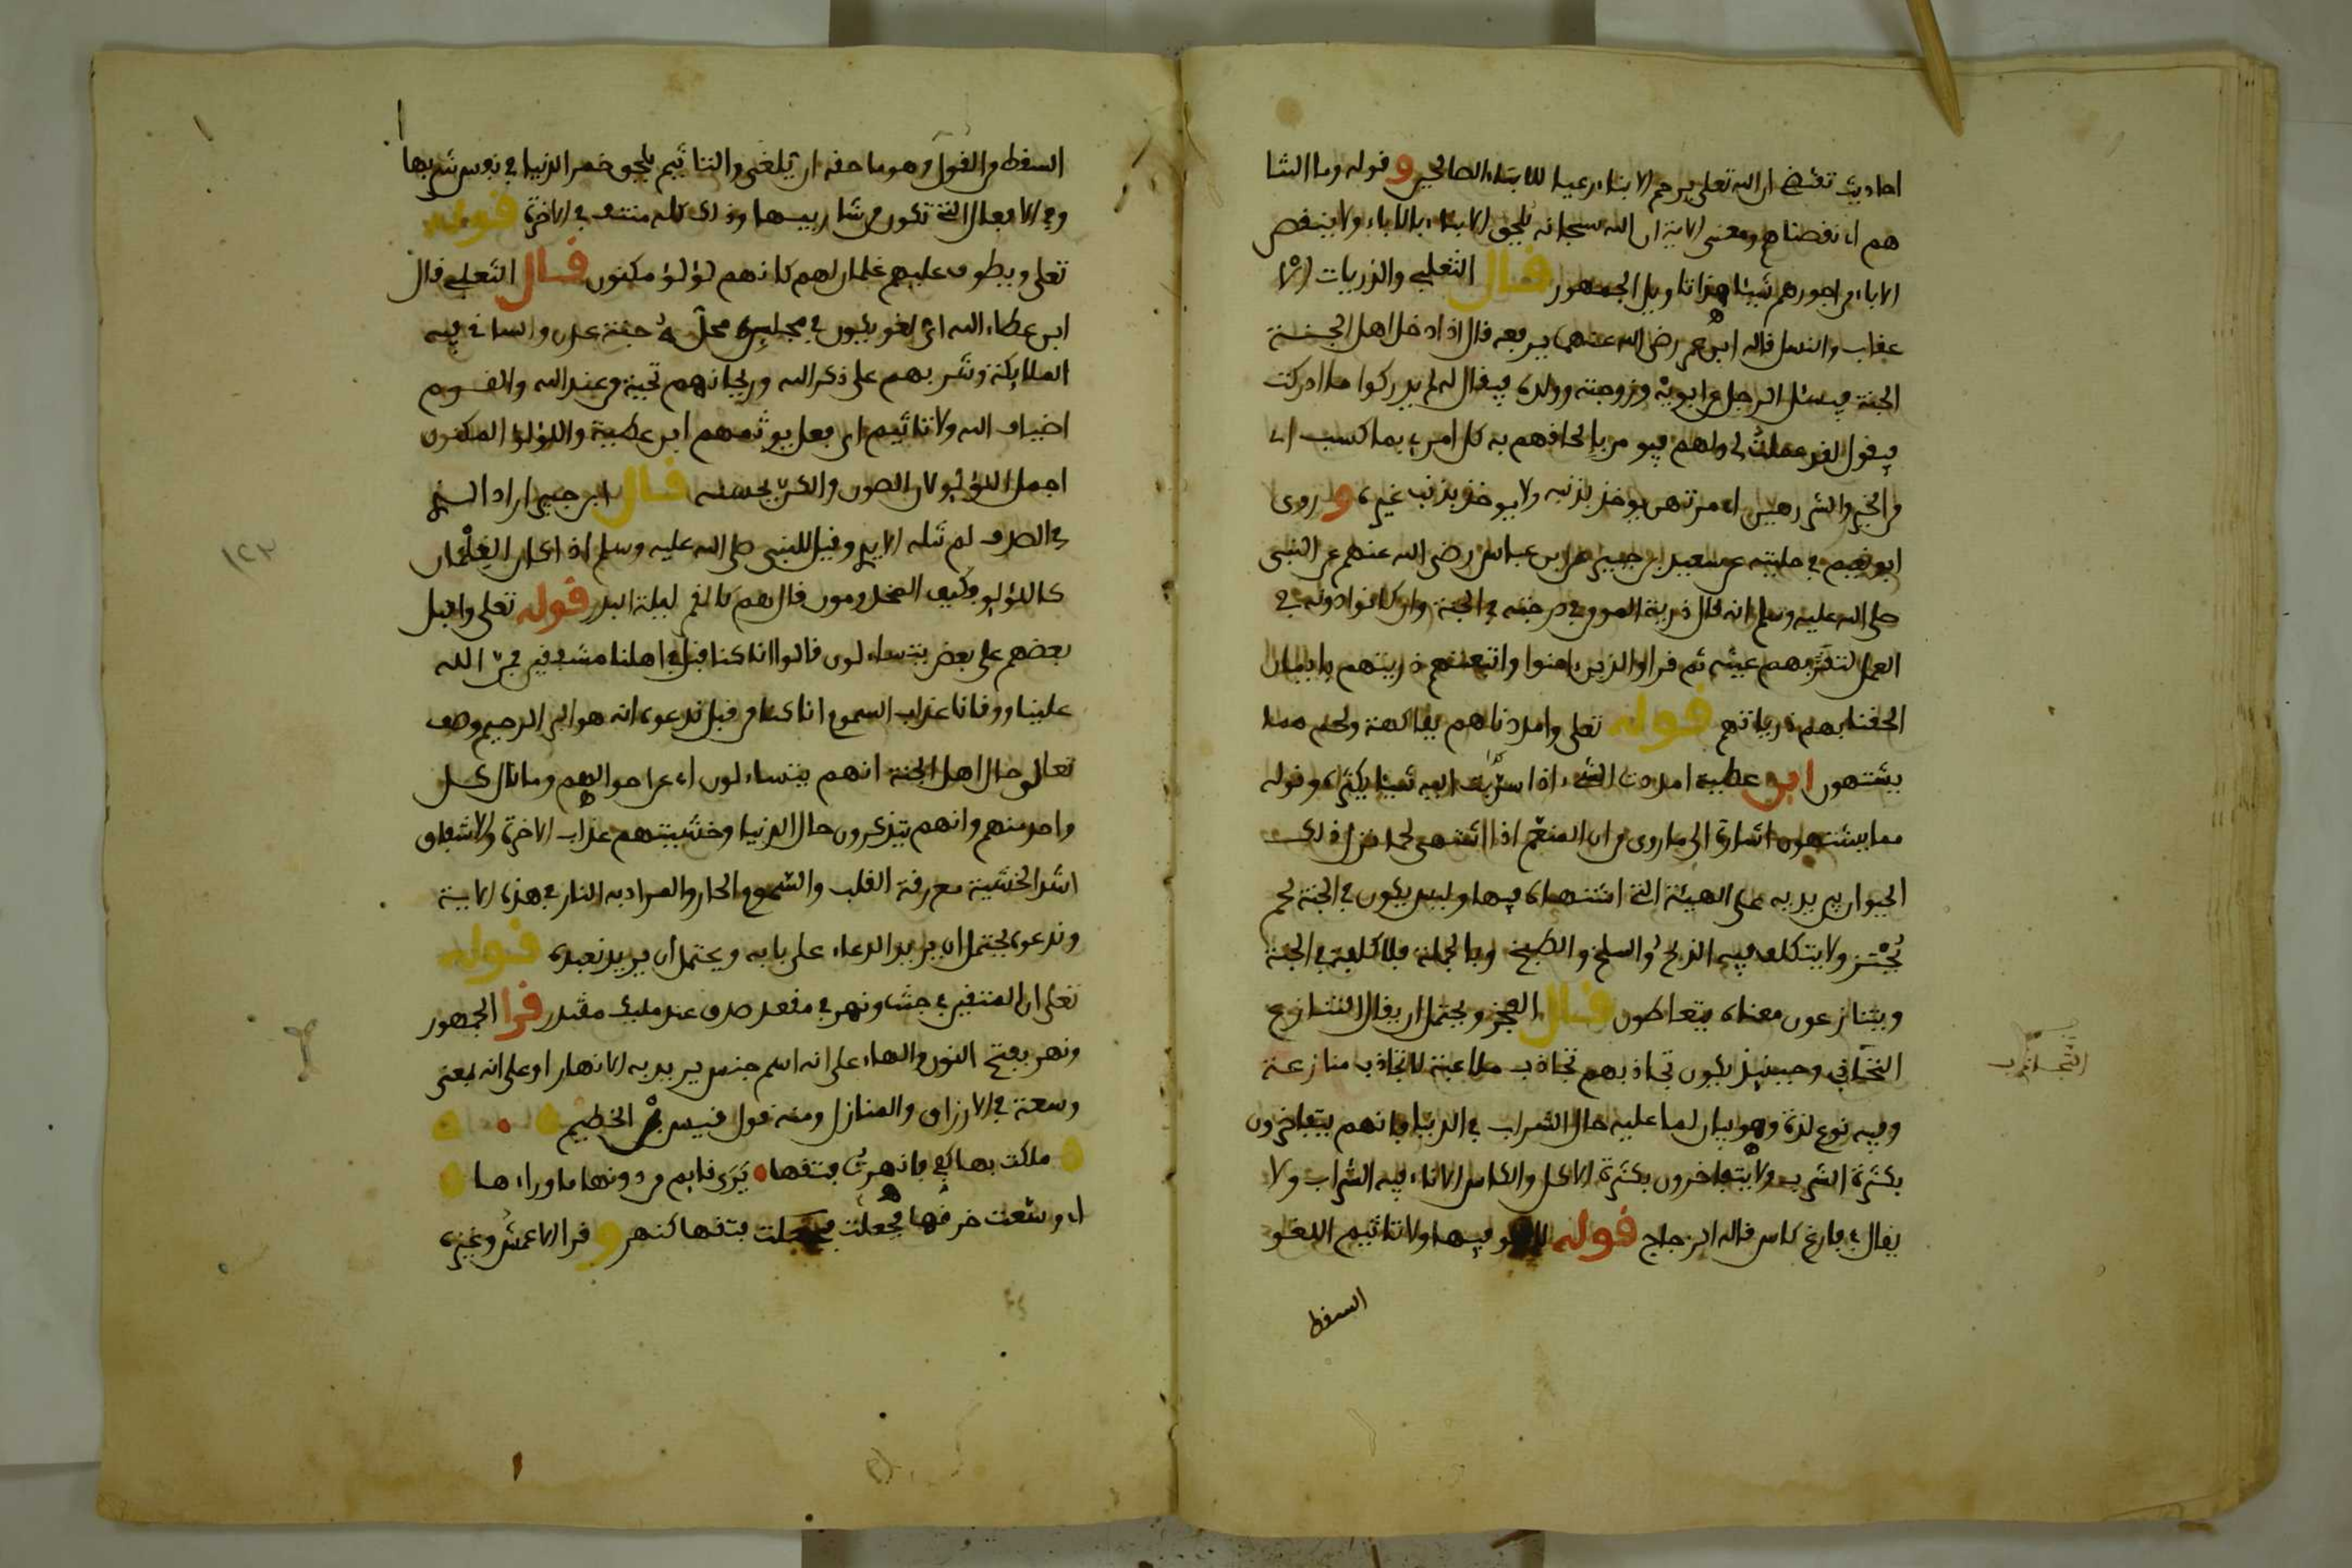 احاديث تقتضي ان الله تعلى يرحم الابناء رعيا للابناء الصالحين وقوله وما التنا
هم اي نقصناهم ومعنى الاية ان الله سبحانه يلحق الابناء بالاباء ولا ينقص
الاباء من اجورهم شيئا هذا تاويل الجمهور قال الثعلبي والذريات الا
عقاب والنسل قاله ابن عمر رضي الله عنهما يرفعه قال اذا دخل اهل الجنة
الجنة فيسئل الرجل عن ابويه وزوجته وولده فيقال لم يدركوا ما ادركت
فيقول لقد عملت لي ولهم فيومر بالحافهم به كل امرء بما كسب اي
من الخير والشر رهين اي مرتهن يوخذ بذنبه ولا يوخذ بذنب غيره وروى
ابو نعيم في حليته عن سعيد بن جبير عن ابن عباس رضي الله عنهم عن النبي
صلى الله عليه وسلم انه قال ذرية المومن في درجته في الجنة وان كانوا دونه في
العمل لتقر بهم عينه ثم قرا والذين ءامنوا واتبعتهم ذريتهم بايمان
الحقنا بهم ذرياتهم قوله تعلى وامددناهم بفاكهة ولحم مما
يشتهون ابن عطية امددت الشيء اذا اسربت اليه شيئا يكثره وقوله
مما يشتهون اشارة الى ما روي من ان المنعم اذا اشتهى لحما نزل ذلك
الحيوان بين يديه على الهيئة التي اشتهاه فيها وليس يكون في الجنة لحم
يختز ولا يتكلف فيه الذبح والسلخ والطبخ وبالجملة فلا كلفة في الجنة
ويتنازعون معناه يتعاطون قال الفخر ويحتمل ان يقال التنازع
التجاذب وحينئذ يكون تجاذبهم تجاذب ملاعبة لا تجاذب منازعة
وفيه نوع لذة وهو بيان لما عليه حال الشراب في الدنيا فانهم يتفاخرون
بكثرة الشرب ولا يتفاخرون بكثرة الاكل والكاس الاناء فيه الشراب ولا
يقال في فارغ كاس قاله الزجاج قوله لا لغو فيها ولا تاثيم اللغو
السقط
التجاذب
السقط من القول وهو ما حقه ان يلغى والتاثيم يلحق خمر الدنيا في نفس شربها
وفي الافعال التي تكون من شاربيها وذلك كله منتف في الاخرة قوله
تعلى ويطوف عليهم غلمان لهم كانهم لؤلؤ مكنون قال الثعلبي قال
ابن عطاء الله اي لغو يكون في مجلس محله جنة عدن والساقي فيه
الملايكة وشربهم على ذكر الله وريحانهم تحية من عند الله والقوم
اضياف الله ولا تاثيم اي فعل يوثمهم ابن عطية واللؤلؤ المكنون
اجمل اللؤلؤ لان الصون والكن يحسنه قال ابن جبير اراد الذي
في الصدف لم تنله الايدي وقيل للنبي صلى الله عليه وسلم اذا كان الغلمان
كاللؤلؤ فكيف المخدومون قال هم كالقمر ليلة البدر قوله تعلى واقبل
بعضهم على بعض يتساءلون قالوا انا كنا قبل في اهلنا مشفقين فمن الله
علينا ووقانا عذاب السموم انا كنا من قبل ندعوه انه هو البر الرحيم وصف
تعالى حال اهل الجنة انهم يتساءلون اي عن احوالهم وما نال كل
واحد منهم وانهم يتذكرون حال الدنيا وخشيتهم عذاب الاخرة والاشفاق
اشد الخشية مع رقة القلب والسموم الحار والمراد به النار في هذه الاية
وندعوه يحتمل ان يريد الدعاء على بابه ويحتمل ان يريد نعبده قوله
تعلى ان المتقين في جنات ونهر في مقعد صدق عند مليك مقتدر قرا الجمهور
ونهر بفتح النون والهاء على انه اسم جنس يريد به الانهار او على انه بمعنى
وسعة في الارزاق والمنازل ومنه قول قيس بن الخطيم
ملكت بها كفي فانهرت فتقها يرى قايم من دونها ما وراءها
اي وسعت خرقها فجعلت فتقها كنهر وقرا الاعمش وغيره
١٢٣